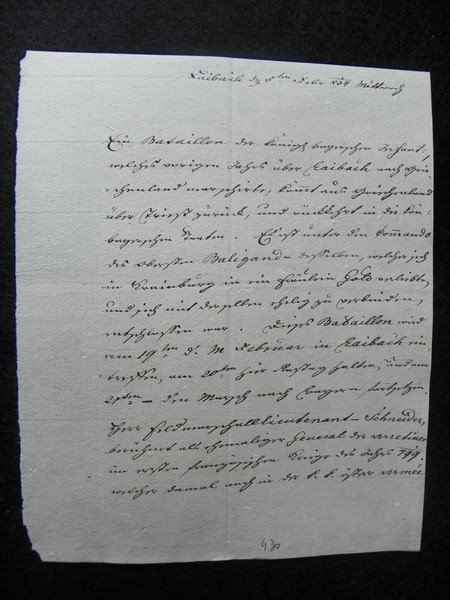 Laibach den 5ten Febr 834 Mittwoch
Ein Bataillon der königl bayerschen Infant,
welches vorigen Jahrs über Laibach nach Grie-
chenland marschirte, kömmt aus Griechenland
über Triest zurück, und rückkehrt in die kön
bayerschen Staaten. Es ist unter dem Commando
des Obersten Baligand – desselben, welcher sich
in Krainburg in ein Fräulein verliebte,
und sich mit derselben ehelig zu verbinden,
entschlossen war. Dieses Bataillon wird
am 19ten d. M Februar in Laibach ein-
treffen, am 20ten hier Rasttag halten, und am
21ten – den Marsch nach Bayern fortsetzen.
Herr Feldmarschalllieutenant – Schneider,
berühmt als ehemaliger General der
im ersten französischen Kriege des Jahrs 799.
welcher damal noch in der k. k. öster Armée
430